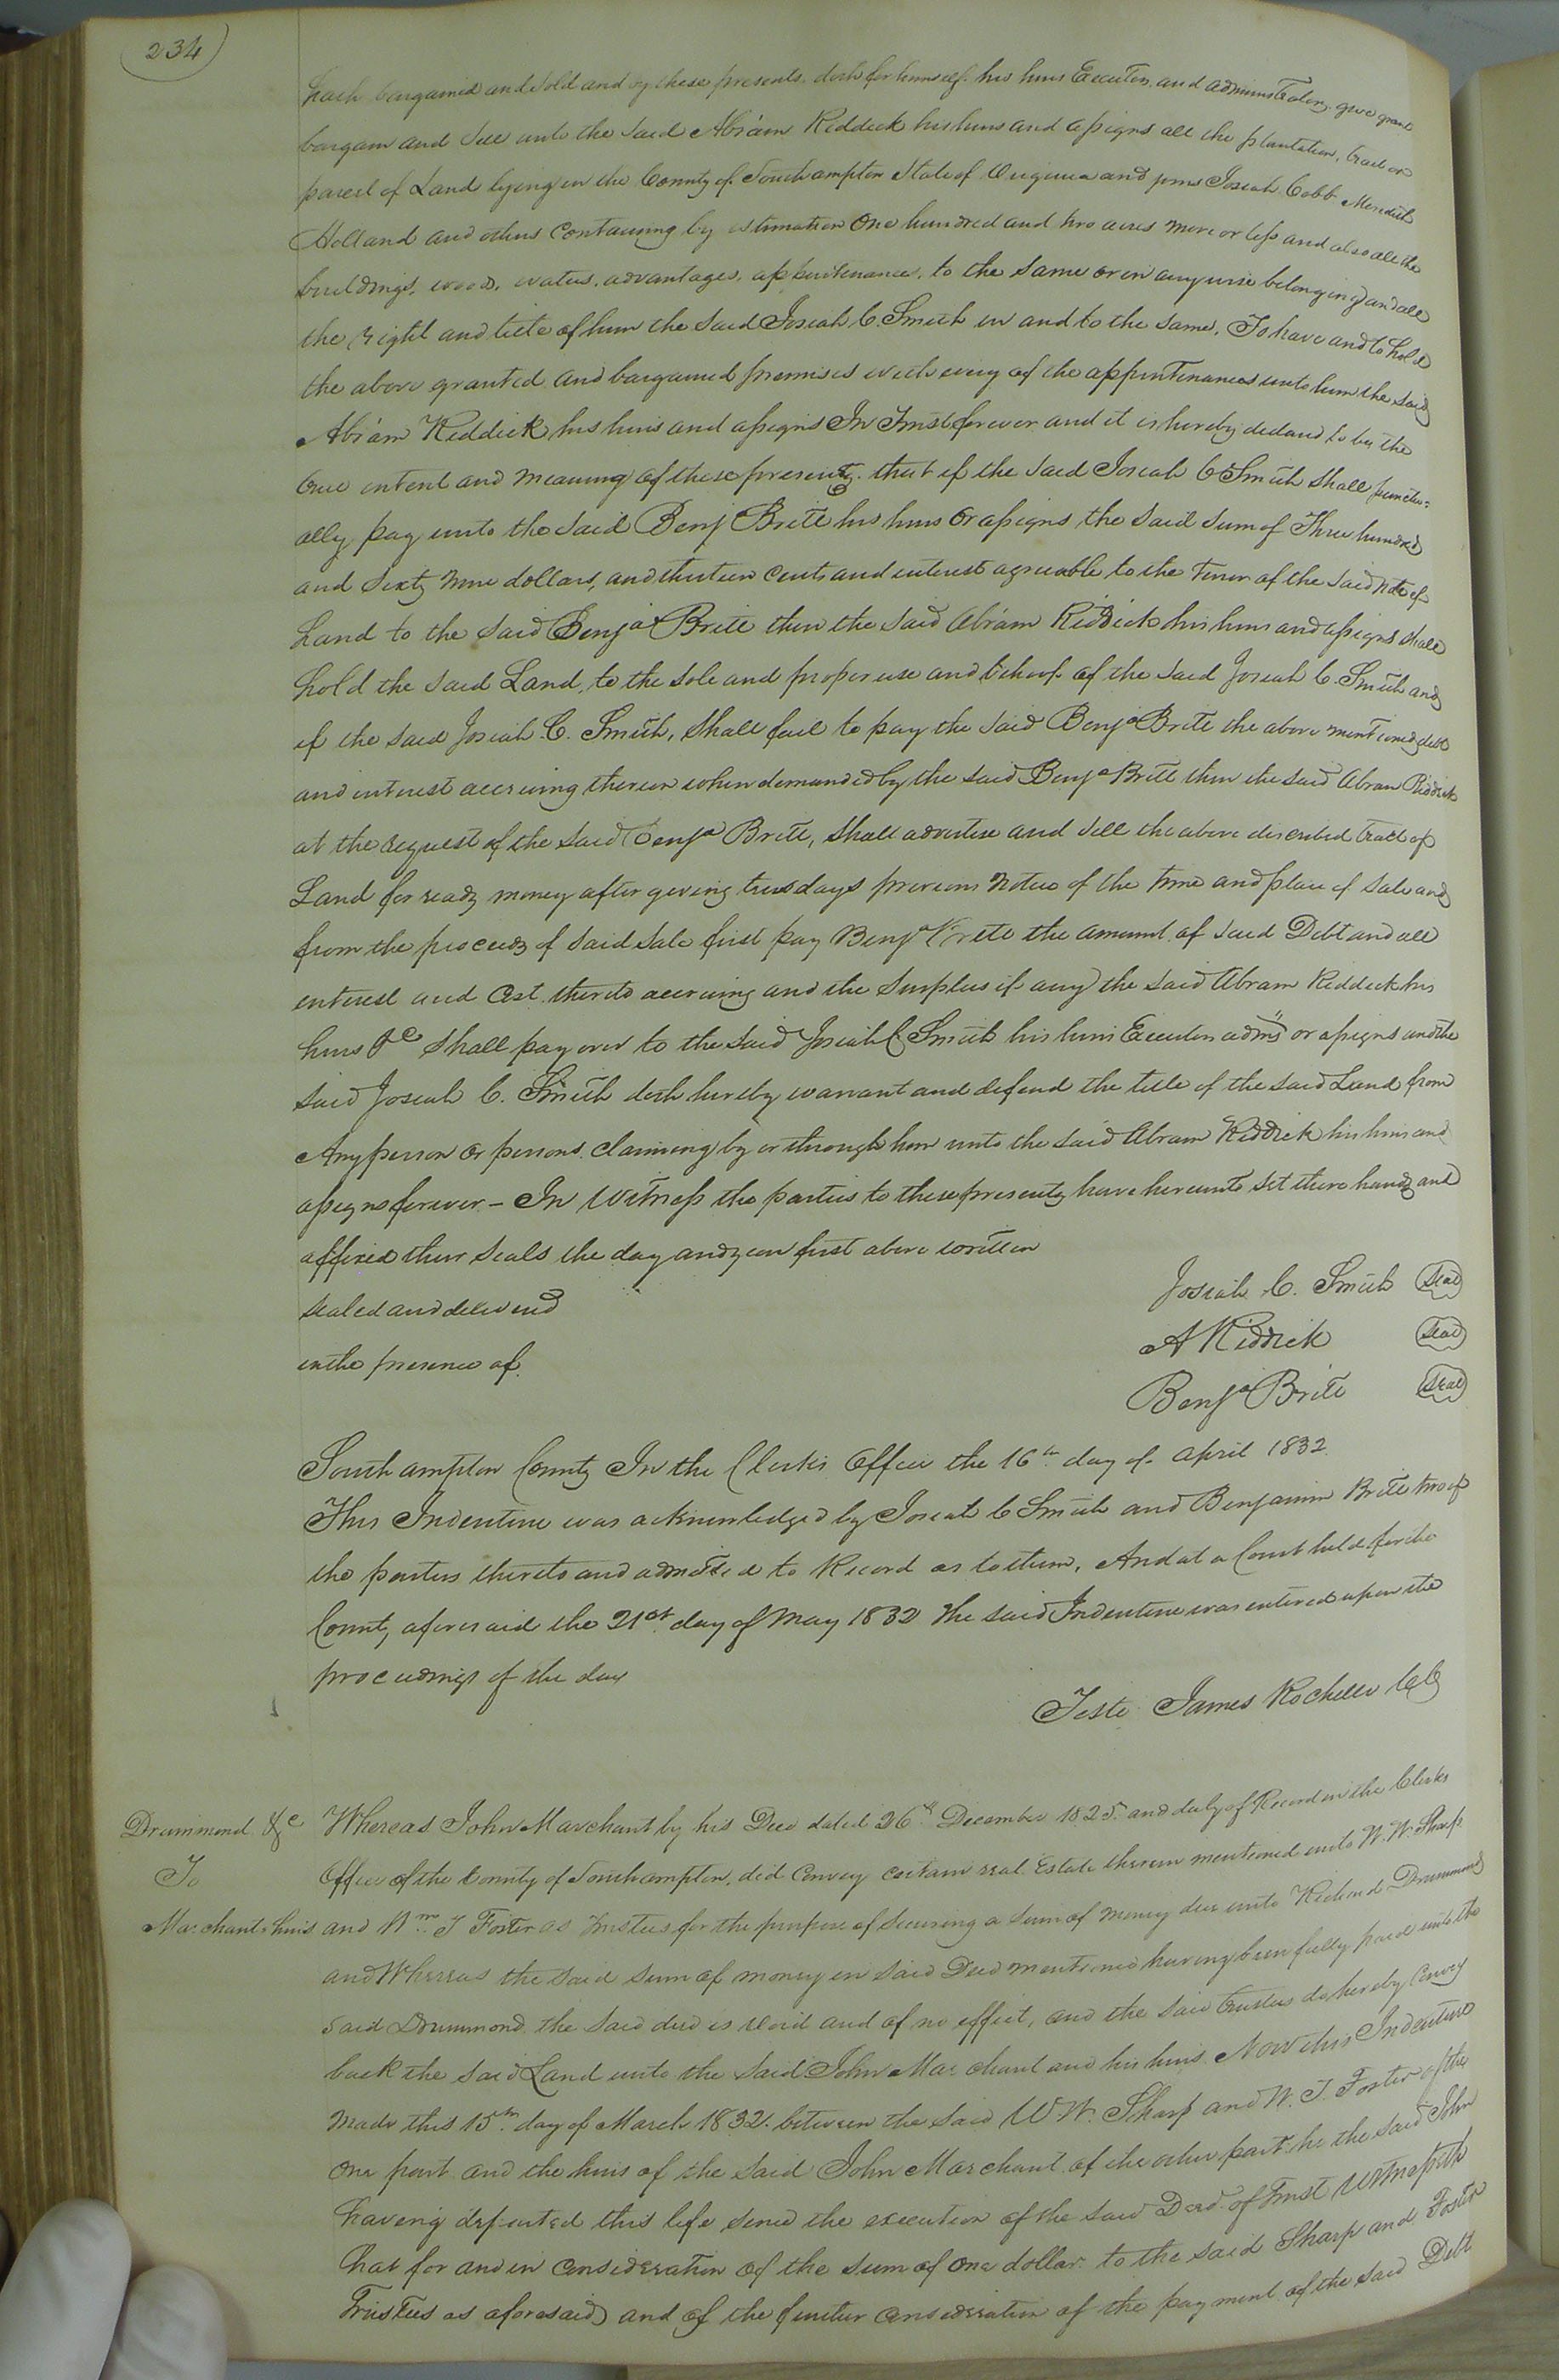 234
hath bargained and sold and by these presents doth for himself his heirs Executors and administrators, give grant
bargain and sell unto the said Abram Riddick his heirs and assigns all the plantation, tract or
parcel of Land lying in the County of Southampton State of Virginia and joins Josiah Cobb Meredith
Holland and others containing by estimation One hundred and two acres more or less and also all the
buildings, woods, waters, advantages, appurtenances, to the same or in any wise belonging and all
the right and title of him the said Josiah C. Smith in and to the same, To have and to hold
the above granted and bargained premises with every of the appurtenances unto him the said
Abram Riddick his heirs and assigns In Trust forever and it is hereby declared to be the
true intent and meaning of these presents that if the said Josiah C Smith shall punctu=
ally pay unto the said Benj Brite his heirs or assigns the said sum of Three hundred
and Sixty Nine dollars, and thirteen Cents and interest agreeable to the tenor of the said note of
Land to the said Benja Brite then the said Abram Riddick his heirs and assigns shall
hold the said Land, to the sole and proper use and behoof of the said Josiah C. Smith and
if the said Josiah C. Smith, shall fail to pay the said Benja Brite the above mentioned debt
and interest accruing thereon when demanded by the said Benja Brite then the said Abram Riddick
at the request of the said Benja Brite, shall advertise and sell the above described tract of
Land for ready money after giving days previous notice of the time and place of sale and
from the proceeds of said sale first pay Benja Brite the amount of said Debt and all
interest and Cost thereto accruing and the surplus if any the said Abram Riddick his
heirs &c shall pay over to the said Josiah C Smith his heirs Executors adms or assigns and the
said Josiah C. Smith doth hereby warrant and defend the title of the said Land from
Any person or persons claiming by or through him unto the said Abram Riddick his heirs and
assigns forever - In Witness the parties to these presents have hereunto set there hands and
affixed their seals the day and year first above written
Sealed and delivered
in the presence of
Josiah C. Smith Seal
A Riddick Seal
Benja Brite Seal
Southampton County In the Clerks Office the 16th day of April 1832
This Indenture was acknowledged by Josiah C Smith and Benjamin Brite two of
the parties thereto and admitted to Record as to them, And at a Court held for the
County aforesaid the 21st day of May 1832 the said Indenture was entered upon the
proceedings of the day
Teste James Rochelle
Drummond &c
To
Marchants heirs
Whereas John Marchant by his Deed dated 26th December 1825 and duly of Record in the Clerks
Office of the County of Southampton, did Convey certain real Estate therein mentioned unto W. W. Sharp
and Wm. T Foster as Trustees for the purpose of securing a sum of money due unto Richard Drummond
and Whereas the said sum of money in said Deed mentioned having been fully paid unto the
said Drummond the said deed is void and of no effect, and the said trustees do hereby Convey
back the said Land unto the said John Marchant and his heirs. Now this Indenture
made this 15th day of March 1832. between the said W W. Sharp and W. T. Foster of the
one part and the heirs of the said John Marchant of the other part he the said John
having departed this life since the execution of the said Deed of Trust Witnesseth
that for and in Consideration of the sum of one dollar to the said Sharp and Foster
Trustees as aforesaid and of the further consideration of the payment of the said Debt